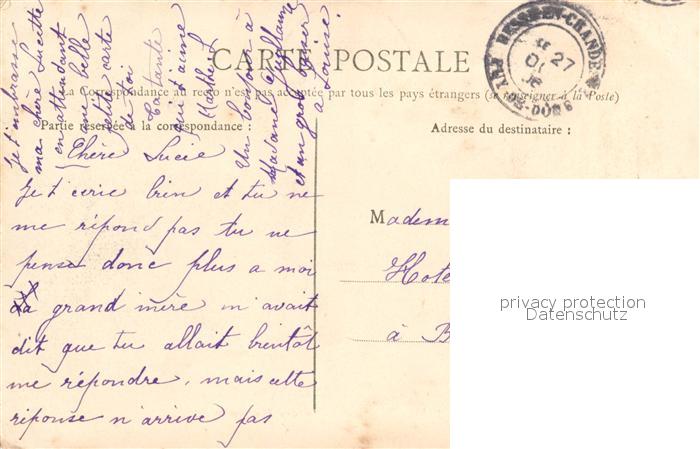 CARTE POSTALE
La Correspondance au recto n'est pas acceptée par tous les pays étrangers (se renseigner à la Poste)
Partie réservée à la correspondance :
Adresse du destinataire :
Chère Lucie
Je t'ecrie bien et tu ne
me répond pas tu ne
pense donc plus a moi
ta grand mère m'avait
dit que tu allait bientôt
me répondre, mais cette
réponse n'arrive pas
Je t'embrasse
ma chère Lucette
en attendant
une belle
petite carte
de toi
Ta tante
qui t'aime
Marthe
Un bonjour à
Madame Guillaume
et un gros baiser
à Louise.
Madem
Hote
à B
BESSE-EN-CHANDESSE
27
PUY-DE-DÔME
privacy protection
Datenschutz